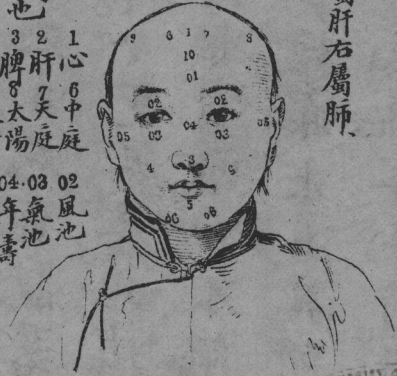 屬肝右屬肺、
1心 6中庭 02風池
2肝 7天庭 03氣池
也
3脾 8太陽 04年壽
9 6 1 7 8
10
01
02 02
04
05 03 03 05
3
4
5
06 06